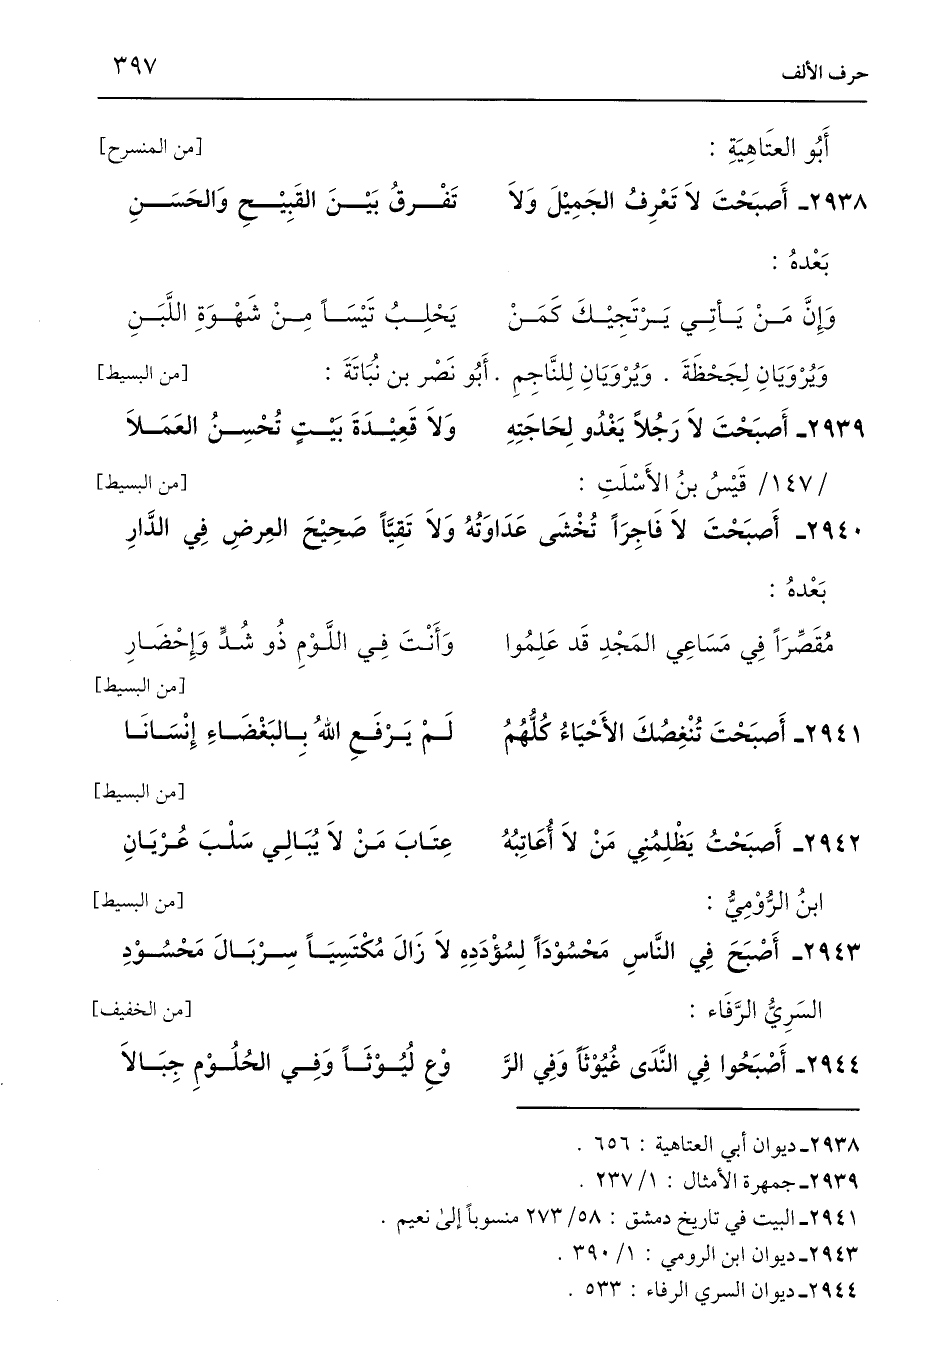 حرف الألف ٣٩٧
أَبُو العتَاهِيَةِ : [من المنسرح]
٢٩٣٨ـ أَصبَحْتَ لاَ تَعْرِفُ الجَمِيْلَ وَلاَ تَفْرقُ بَيْنَ القَبِيْحِ وَالحَسَنِ
بَعْدهُ :
وَإِنَّ مَنْ يَأتِي يَرْتَجِيْكَ كَمَنْ يَحْلِبُ تَيْسَاً مِنْ شَهْوَةِ اللَّبَنِ
وَيُرْوَيَانِ لِجَحْظَةَ . وَيُرْوَيَانِ لِلنَّاجِمِ . أَبُو نَصْر بن نُبَاتَةَ : [من البسيط]
٢٩٣٩ـ أَصبَحْتَ لاَ رَجُلاً يَغْدُو لِحَاجَتِهِ وَلاَ قَعِيْدَةَ بَيْتٍ تُحْسِنُ العَمَلاَ
/١٤٧/ قَيْسُ بنُ الأَسْلَتِ : [من البسيط]
٢٩٤٠ـ أَصبَحْتَ لاَ فَاجِرَاً تُخْشَى عَدَاوَتُهُ وَلاَ تَقِيَّاً صَحِيْحَ العِرضِ فِي الدَّارِ
بَعْدهُ :
مُقَصِّرَاً فِي مَسَاعِي المَجْدِ قَد عَلِمُوا وَأَنْتَ فِي اللَّوْمِ ذُو شُدٍّ وَإِحْضَارِ
[من البسيط]
٢٩٤١ـ أَصبَحْتَ تُنْغِصُكَ الأَحْيَاءُ كُلُّهُمُ لَمْ يَرْفَعِ اللهُ بِالبَغْضَاءِ إِنْسَانَا
[من البسيط]
٢٩٤٢ـ أَصبَحْتُ يَظْلِمُنِي مَنْ لاَ أُعَاتِبُهُ عِتَابَ مَنْ لاَ يُبَالِي سَلْبَ عُرْيَانِ
ابنُ الرُّوْمِيُّ : [من البسيط]
٢٩٤٣ـ أَصْبَحَ فِي النَّاسِ مَحْسُوْدَاً لِسُؤْدَدِهِ لاَ زَالَ مُكْتَسِيَاً سِرْبَالَ مَحْسُوْدِ
السَرِيُّ الرَّفَاء : [من الخفيف]
٢٩٤٤ـ أَصْبَحُوا فِي النَّدَى غُيُوْثَاً وَفِي الرَّ وْعِ لُيُوْثَاً وَفِي الحُلُوْمِ جِبَالاَ
٢٩٣٨ـ ديوان أبي العتاهية : ٦٥٦ .
٢٩٣٩ـ جمهرة الأمثال : ١/ ٢٣٧ .
٢٩٤١ـ البيت في تاريخ دمشق : ٥٨/ ٢٧٣ منسوباً إلىٰ نعيم .
٢٩٤٣ـ ديوان ابن الرومي : ١/ ٣٩٠ .
٢٩٤٤ـ ديوان السري الرفاء : ٥٣٣ .